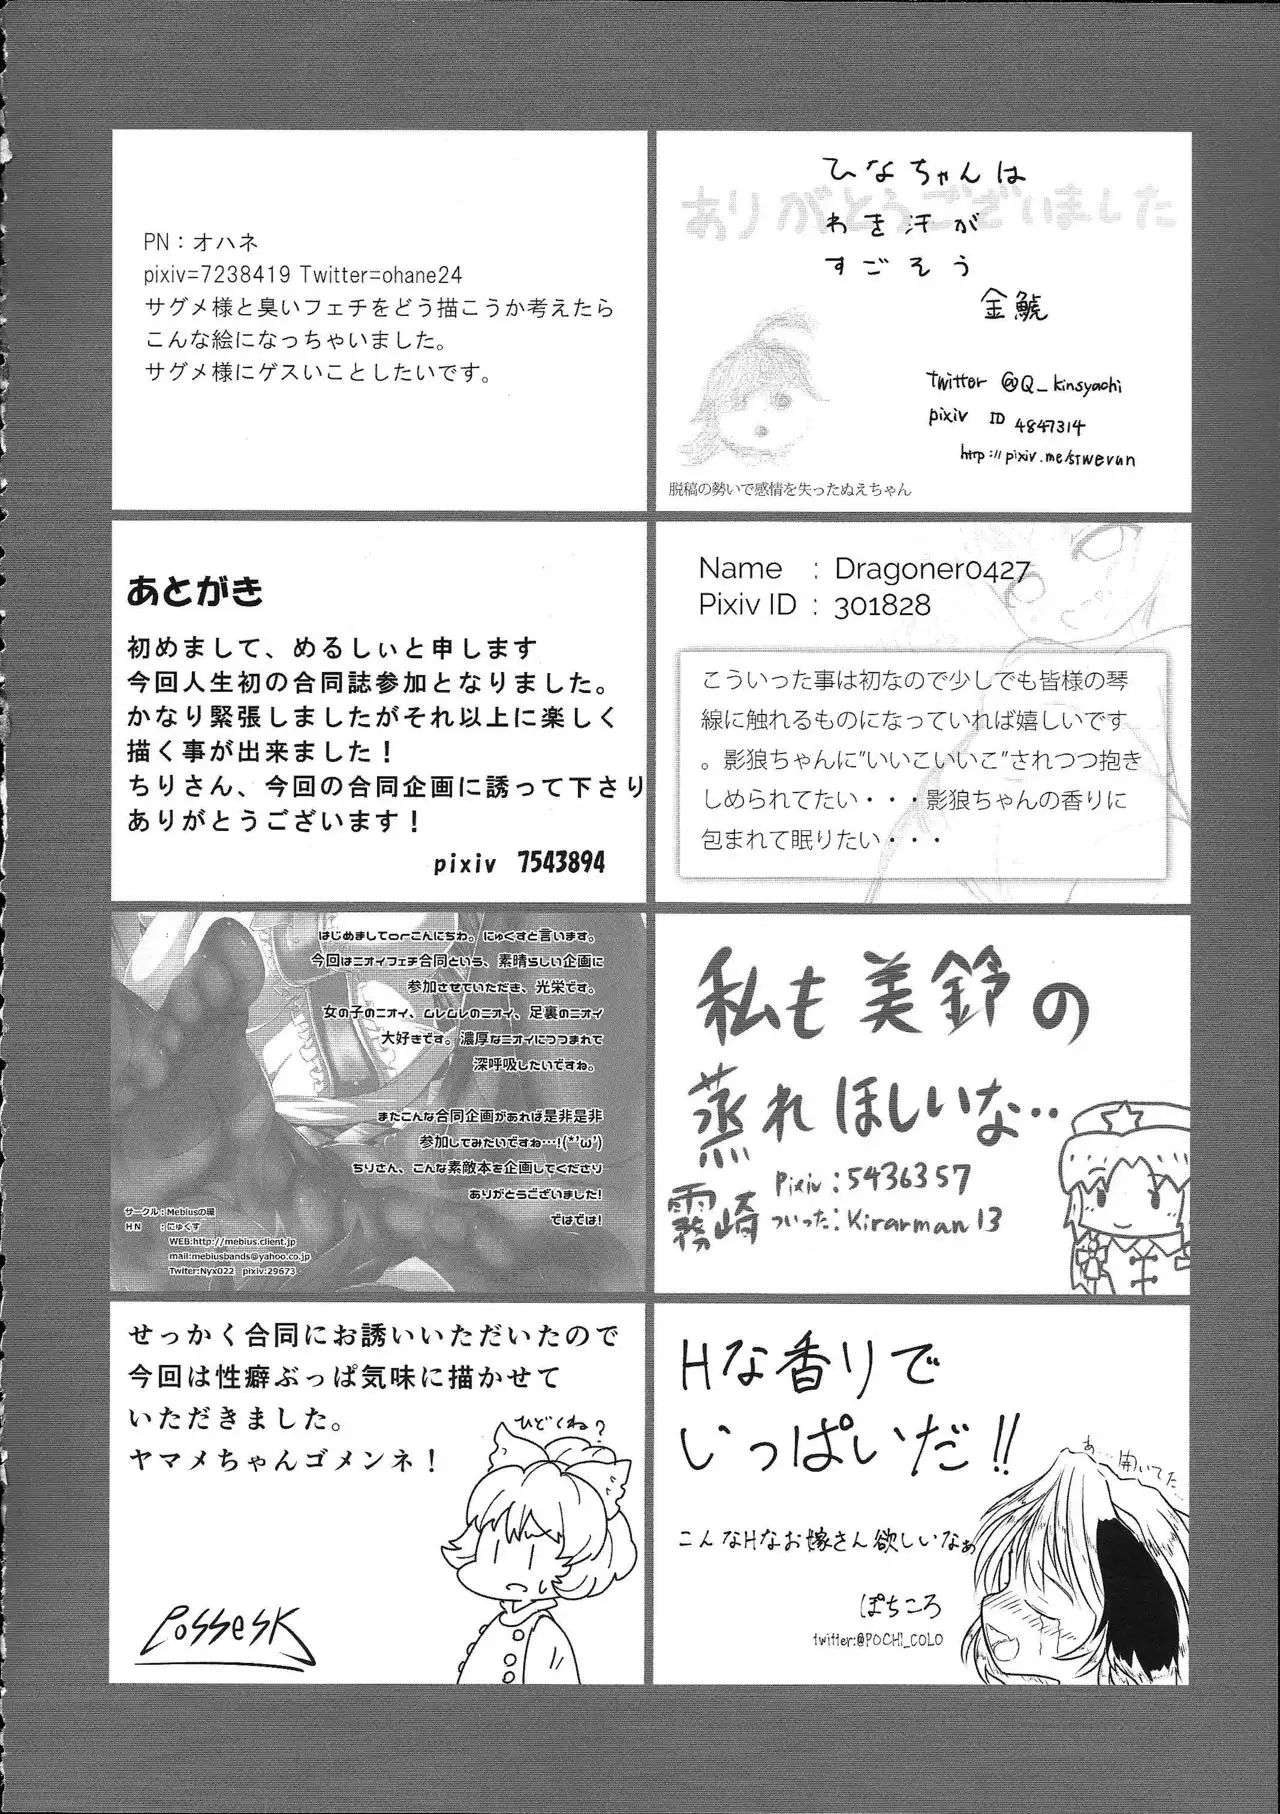 PN：オハネ
pixiv=7238419 Twitter=ohane24
サグメ様と臭いフェチをどう描こうか考えたら
こんな絵になっちゃいました。
サグメ様にゲスいことしたいです。
ありがとうございました
ひなちゃんは
わき汗が
すごそう
金鯱
twitter @Q_kinsyachi
pixiv ID 4847314
http://pixiv.me/stwevun
脱稿の勢いで感情を失ったぬえちゃん
あとがき
初めまして、めるしぃと申します
今回人生初の合同誌参加となりました。
かなり緊張しましたがそれ以上に楽しく
描く事が出来ました！
ちりさん、今回の合同企画に誘って下さり
ありがとうございます！
pixiv 7543894
Name : Dragoner0427
Pixiv ID : 301828
こういった事は初なので少しでも皆様の琴
線に触れるものになっていれば嬉しいです
。影狼ちゃんに"いいこいいこ"されつつ抱き
しめられてたい・・・影狼ちゃんの香りに
包まれて眠りたい・・・
はじめましてorこんにちわ。にゅくすと言います。
今回はニオイフェチ合同という、素晴らしい企画に
参加させていただき、光栄です。
女の子のニオイ、ムレムレのニオイ、足裏のニオイ
大好きです。濃厚なニオイにつつまれて
深呼吸したいですね。
またこんな合同企画があれば是非是非
参加してみたいですね…!(*'ω')
ちりさん、こんな素敵本を企画してくださり
ありがとうございました!
ではでは!
サークル：Mebiusの環
HN ：にゅくす
WEB:http://mebius.client.jp
mail:mebiusbands@yahoo.co.jp
Twiter:Nyx022 pixiv:29673
私も美鈴の
蒸れほしいな‥
霧崎
Pixiv:5436357
ついった:Kirarman13
せっかく合同にお誘いいただいたので
今回は性癖ぶっぱ気味に描かせて
いただきました。
ヤマメちゃんゴメンネ！
ひどくね？
PossesK
Hな香りで
いっぱいだ!!
あ…開いてた…
こんなHなお嫁さん欲しいなぁ
ぽちころ
twitter:@POCHI_COLO